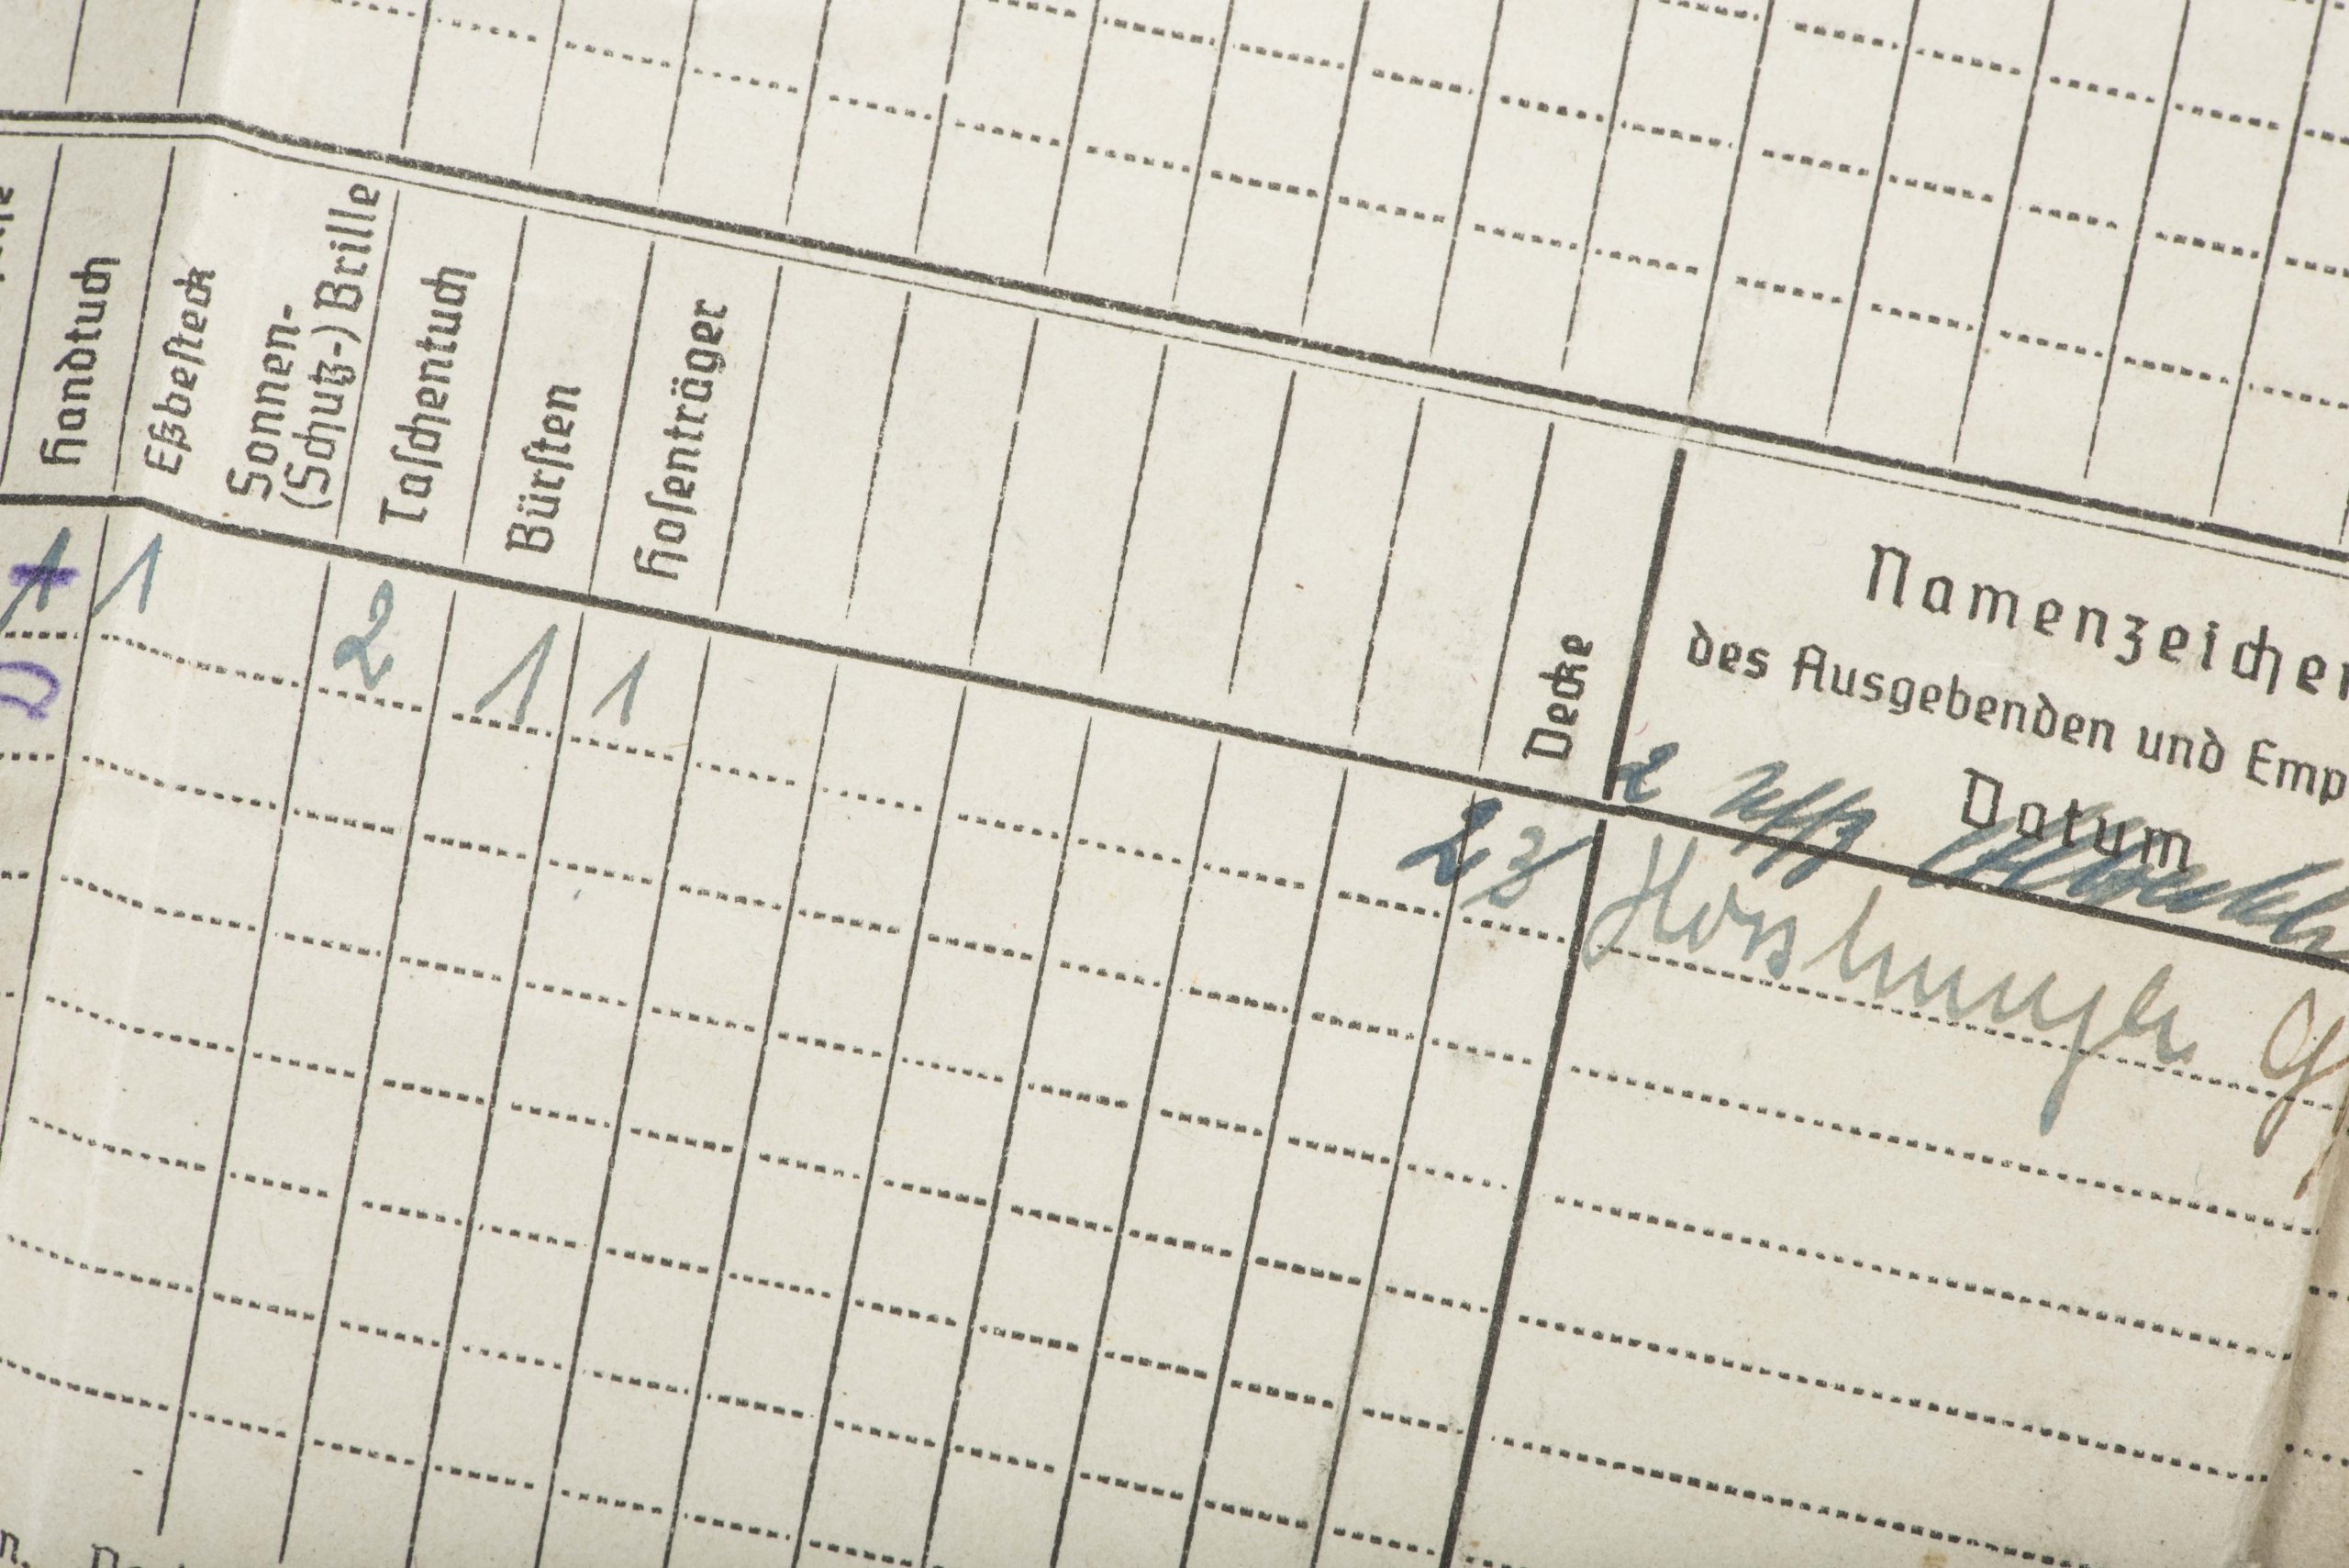 Handtuch
Eßbesteck
Sonnen-
(Schutz-) Brille
Taschentuch
Bürsten
Hosenträger
Decke
Namenzeichen
des Ausgebenden und Emp
Datum
1 1 2 1 1 2 3
2 Uffz